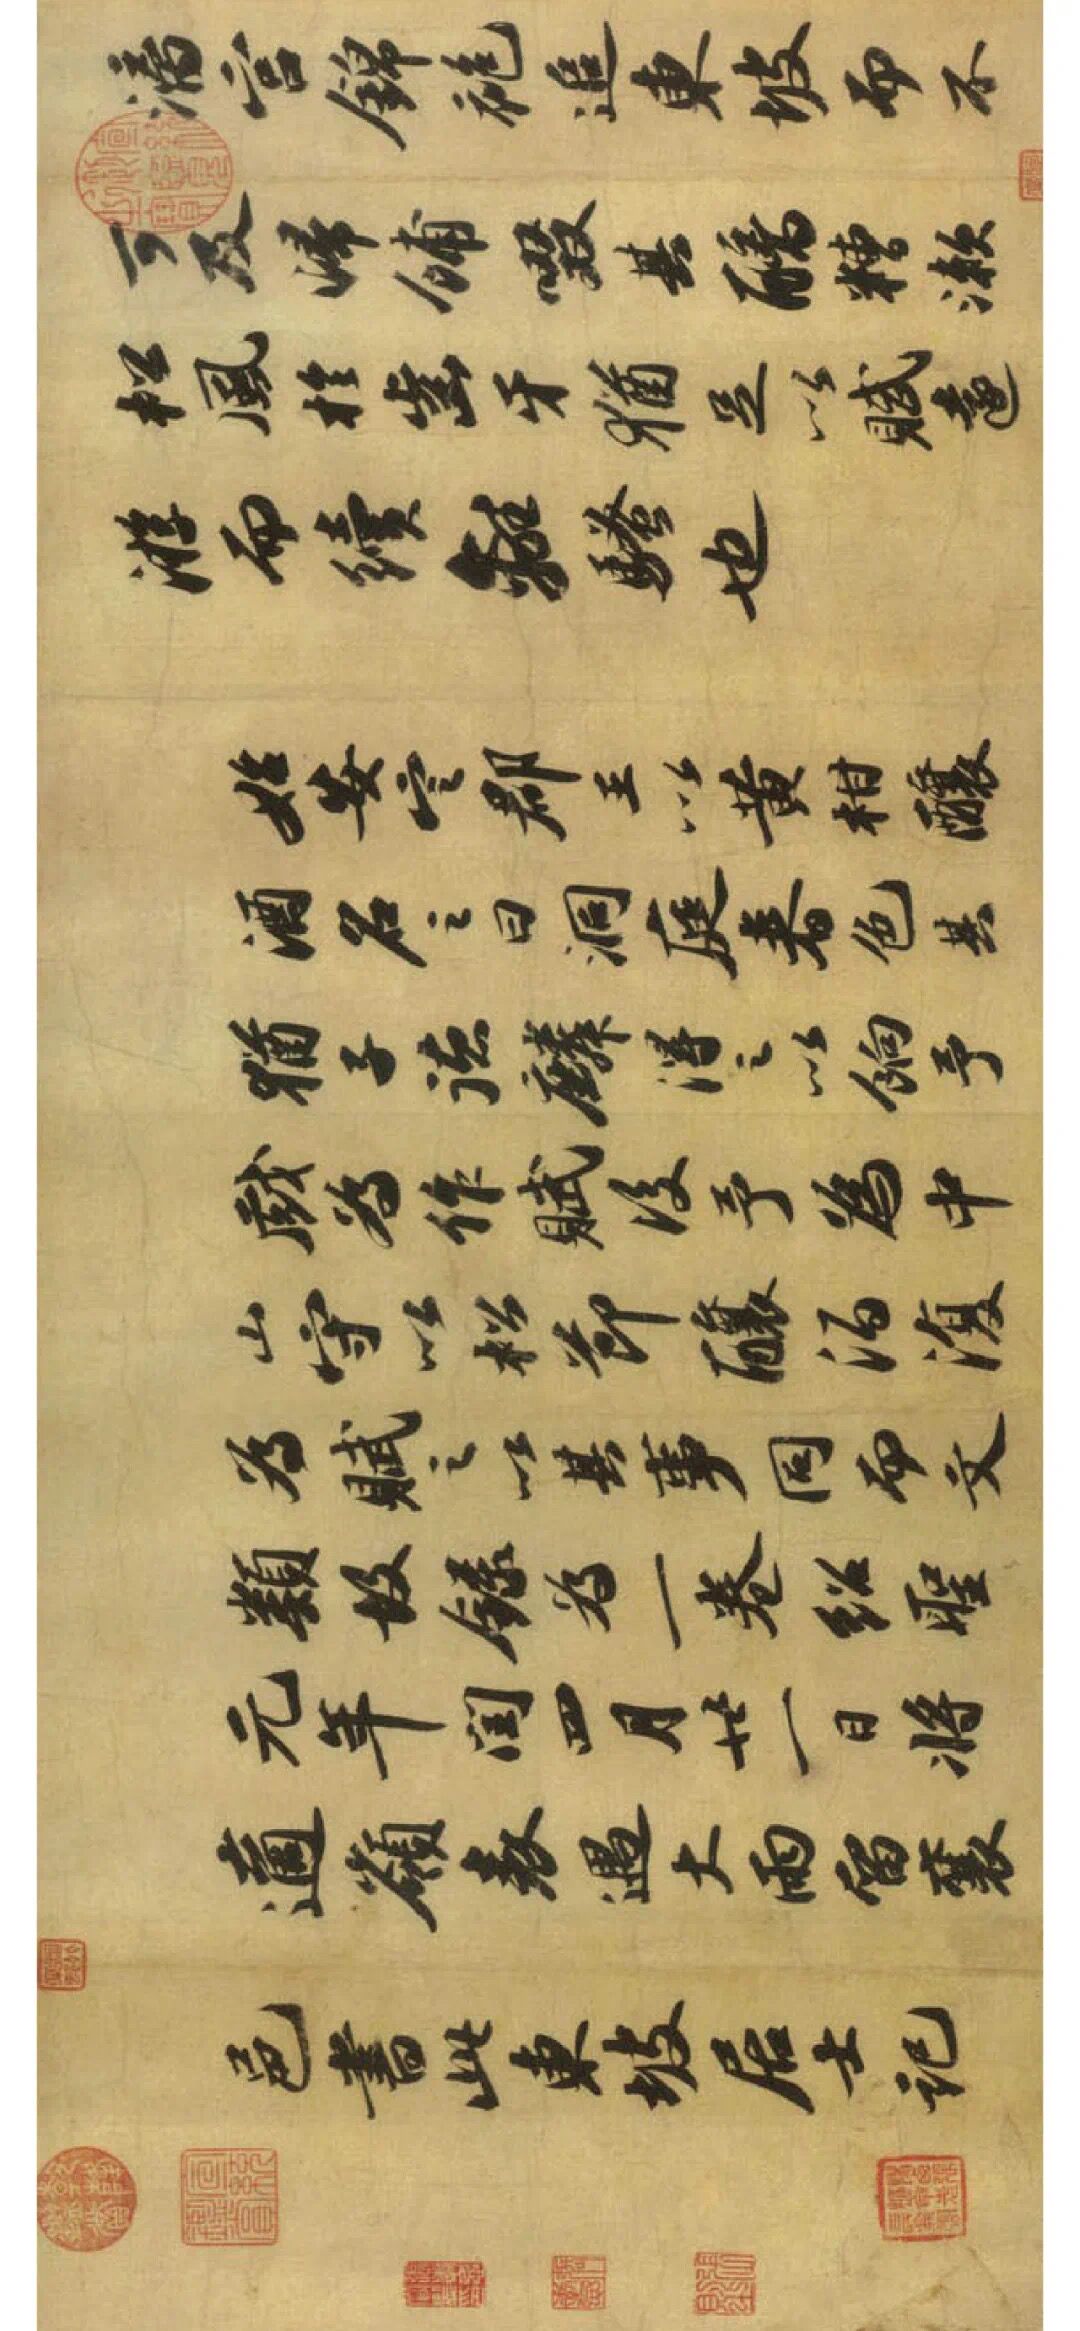 漓宮錦袍追東坡而不
可及歸餔啜其醨糟漱
松風於齒牙猶足以賦遠
游而續離騷也
始安定郡王以黃柑釀
酒名之曰洞庭春色其
猶子德麟得之以餉予
戲為作賦後予為中
山守以松節釀酒復
為賦之以其事同而文
類故錄為一卷紹聖
元年閏四月廿一日將
適嶺表遇大雨留襄
邑書此東坡居士記